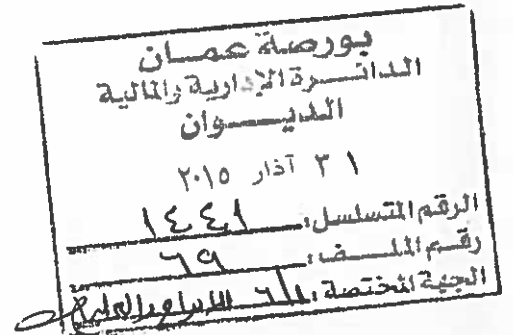 بورصة عمان
الدائرة الإدارية والمالية
الديوان
٣١ آذار ٢٠١٥
الرقم المتسلسل: ١٤٤١
رقم الملف: ٦٩
الجهة المختصة: